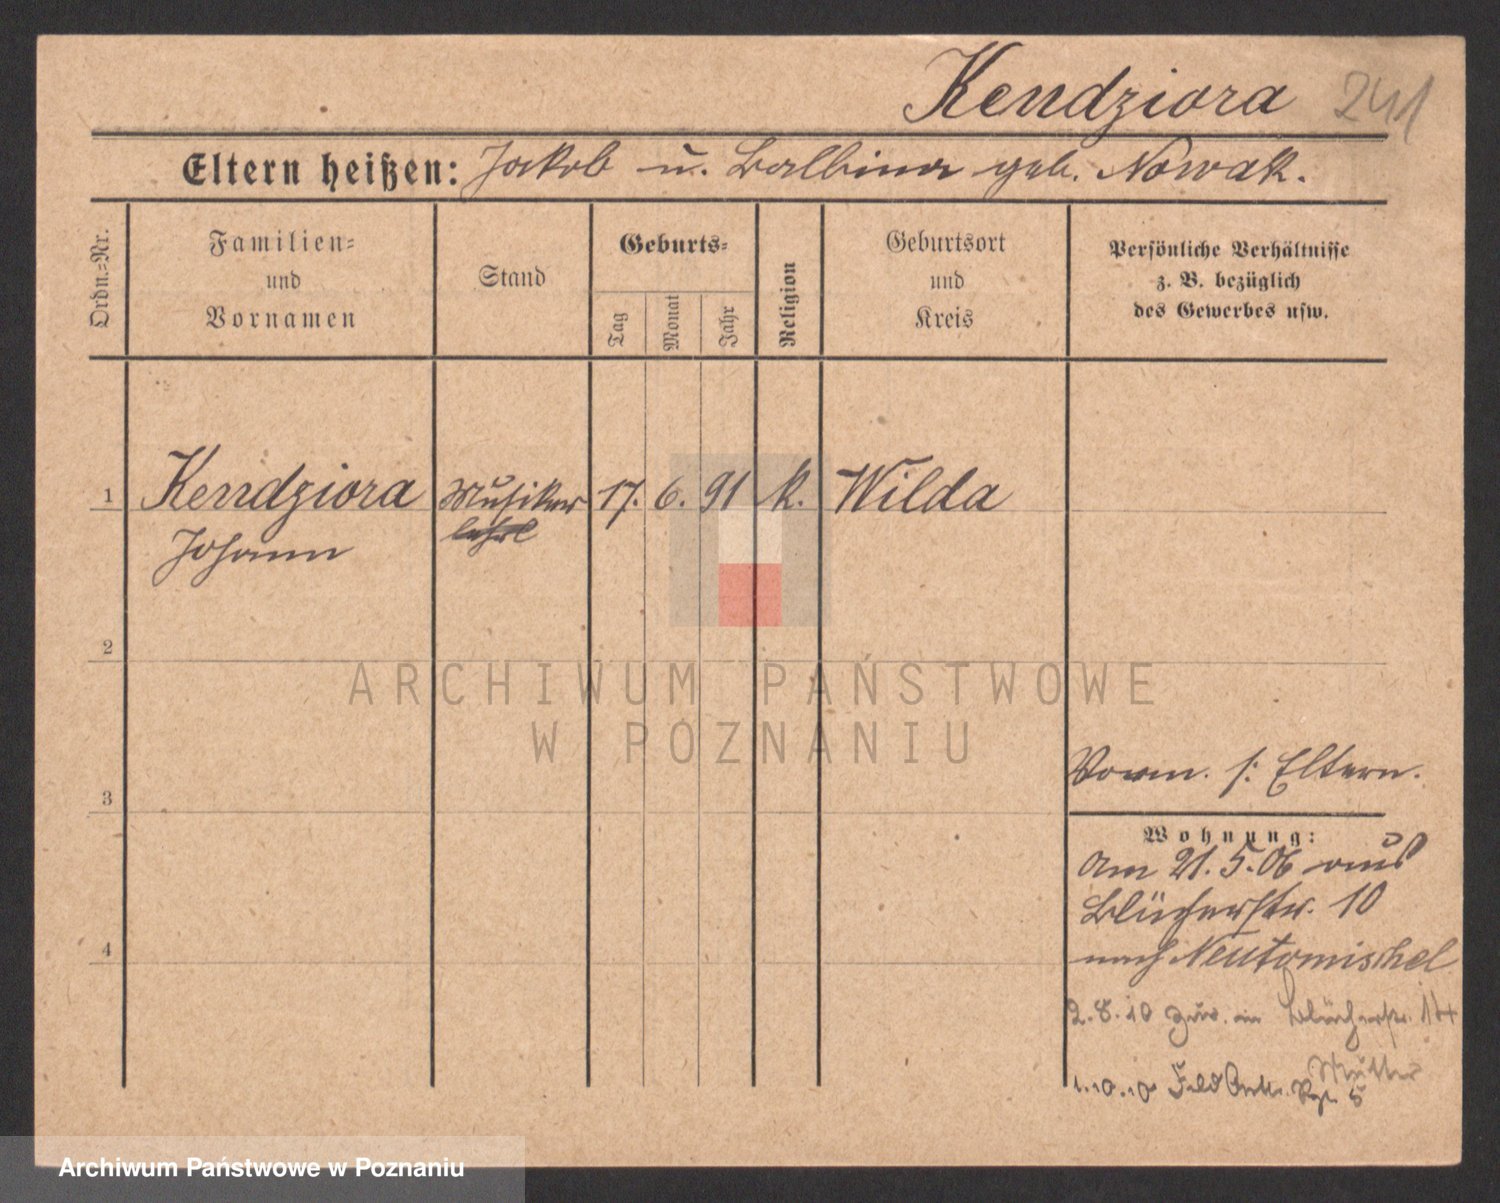 Kendziora 241
Eltern heißen: Jakob u. Balbina geb. Nowak.
Ordn.=Nr.
Familien=
und
Vornamen
Stand
Geburts=
Tag
Monat
Jahr
Religion
Geburtsort
und
Kreis
Persönliche Verhältnisse
z. B. bezüglich
des Gewerbes usw.
1 Kendziora Musiker 17. 6. 91 k. Wilda
Johann lehrl
2
ARCHIWUM PAŃSTWOWE
W POZNANIU
3
Vorm. s: Eltern.
Wohnung:
am 21. 5. 06 aus
Blücherstr. 10
nach Neutomischel
4
2.8.10 zur. in Blücherstr. 14
Mutter
1.10.10 Feld Artl. Rgt. 5
Archiwum Państwowe w Poznaniu